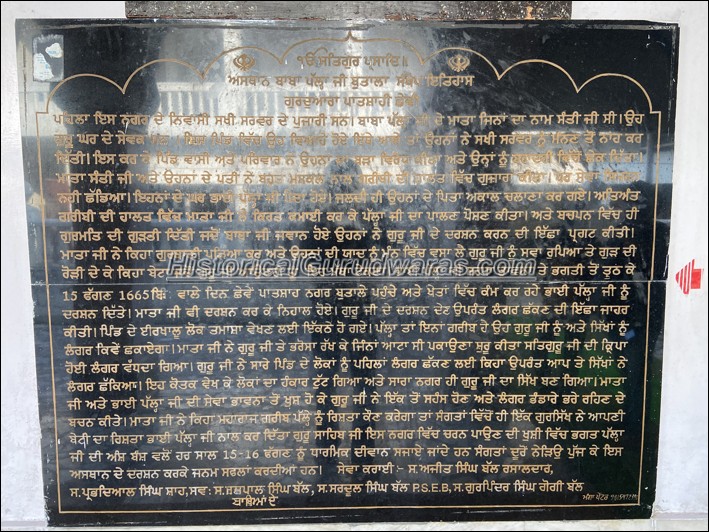 ੴ ਸਤਿਗੁਰ ਪ੍ਰਸਾਦਿ॥
ਅਸਥਾਨ ਬਾਬਾ ਪੱਲ੍ਹਾ ਜੀ ਬੁਤਾਲਾ ਸੰਖੇਪ ਇਤਿਹਾਸ
ਗੁਰਦੁਆਰਾ ਪਾਤਸ਼ਾਹੀ ਛੇਵੀਂ
ਪਹਿਲਾ ਇਸ ਨਗਰ ਦੇ ਨਿਵਾਸੀ ਸਖੀ ਸਰਵਰ ਦੇ ਪੁਜਾਰੀ ਸਨ। ਬਾਬਾ ਪੱਲ੍ਹਾ ਜੀ ਦੇ ਮਾਤਾ ਜਿਨਾਂ ਦਾ ਨਾਮ ਸੰਤੀ ਜੀ ਸੀ। ਉਹ
ਗੁਰੂ ਘਰ ਦੇ ਸੇਵਕ ਪਿੰਡ ਵਿੱਚ ਵਿਆਹੇ ਹੋਏ ਇਥੇ ਆਏ ਤਾਂ ਉਹਨਾਂ ਨੇ ਸਖੀ ਸਰਵਰ ਨੂੰ ਮੰਨਣ ਤੋਂ ਨਾਂਹ ਕਰ
ਦਿੱਤੀ। ਇਸ ਕਰ ਕੇ ਪਿੰਡ ਵਾਸੀ ਅਤੇ ਪਰਿਵਾਰ ਨੇ ਉਹਨਾਂ ਦਾ ਬੜਾ ਵਿਰੋਧ ਕੀਤਾ ਅਤੇ ਉਨ੍ਹਾਂ ਨੂੰ ਕਰ ਦਿੱਤਾ।
ਮਾਤਾ ਸੰਤੀ ਜੀ ਅਤੇ ਉਹਨਾਂ ਦੇ ਪਤੀ ਨੇ ਬਹੁਤ ਮੁਸ਼ਕਲ ਨਾਲ ਗਰੀਬੀ ਦੀ ਹਾਲਤ ਵਿੱਚ ਗੁਜਾਰਾ ਕੀਤਾ। ਪਰ ਸੇਵਾ ਸਿਮਰਨ
ਨਹੀਂ ਛੱਡਿਆ। ਇਹਨਾਂ ਦੇ ਘਰ ਭਾਈ ਪੱਲ੍ਹਾ ਜੀ ਪੈਦਾ ਹੋਏ। ਜਲਦੀ ਹੀ ਉਹਨਾਂ ਦੇ ਪਿਤਾ ਅਕਾਲ ਚਲਾਣਾ ਕਰ ਗਏ। ਅਤਿਅੰਤ
ਗਰੀਬੀ ਦੀ ਹਾਲਤ ਵਿੱਚ ਮਾਤਾ ਜੀ ਨੇ ਕਿਰਤ ਕਮਾਈ ਕਰ ਕੇ ਪੱਲ੍ਹਾ ਜੀ ਦਾ ਪਾਲਣ ਪੋਸ਼ਣ ਕੀਤਾ। ਅਤੇ ਬਚਪਨ ਵਿੱਚ ਹੀ
ਗੁਰਮਤਿ ਦੀ ਗੁੜਤੀ ਦਿੱਤੀ ਜਦੋਂ ਬਾਬਾ ਜੀ ਜਵਾਨ ਹੋਏ ਉਹਨਾਂ ਨੇ ਗੁਰੂ ਜੀ ਦੇ ਦਰਸ਼ਨ ਕਰਨ ਦੀ ਇੱਛਾ ਪ੍ਰਗਟ ਕੀਤੀ।
ਮਾਤਾ ਜੀ ਨੇ ਕਿਹਾ ਗੁਰੂ ਜੀ ਪਾਸ ਜਾਇਆ ਕਰ ਅਤੇ ਉਹਨਾਂ ਦੀ ਯਾਦ ਨੂੰ ਮਨ ਵਿੱਚ ਵਸਾ ਲੈ ਗੁਰੂ ਜੀ ਨੂੰ ਸਵਾ ਰੁਪਿਆ ਤੇ ਗੁੜ ਦੀ
ਰੋੜੀ ਦੇ ਕੇ ਕਿਹਾ ਬੇਟਾ ਤੇ ਭਗਤੀ ਤੋਂ ਤੁਠ ਕੇ
HistoricalGurudwaras.com
15 ਫੱਗਣ 1665ਬਿ: ਵਾਲੇ ਦਿਨ ਛੇਵੇਂ ਪਾਤਸ਼ਾਹ ਨਗਰ ਬੁਤਾਲੇ ਪਹੁੰਚੇ ਅਤੇ ਖੇਤਾਂ ਵਿੱਚ ਕੰਮ ਕਰ ਰਹੇ ਭਾਈ ਪੱਲ੍ਹਾ ਜੀ ਨੂੰ
ਦਰਸ਼ਨ ਦਿੱਤੇ। ਮਾਤਾ ਜੀ ਵੀ ਦਰਸ਼ਨ ਕਰ ਕੇ ਨਿਹਾਲ ਹੋਏ। ਗੁਰੂ ਜੀ ਦੇ ਦਰਸ਼ਨ ਦੇਣ ਉਪਰੰਤ ਲੰਗਰ ਛਕਣ ਦੀ ਇੱਛਾ ਜਾਹਰ
ਕੀਤੀ। ਪਿੰਡ ਦੇ ਈਰਖਾਲੂ ਲੋਕ ਤਮਾਸ਼ਾ ਵੇਖਣ ਲਈ ਇਕੱਠੇ ਹੋ ਗਏ। ਪੱਲ੍ਹਾ ਤਾਂ ਇਨਾਂ ਗਰੀਬ ਹੈ ਉਹ ਗੁਰੂ ਜੀ ਨੂੰ ਅਤੇ ਸਿੱਖਾਂ ਨੂੰ
ਲੰਗਰ ਕਿਵੇਂ ਛਕਾਏਗਾ। ਮਾਤਾ ਜੀ ਨੇ ਗੁਰੂ ਜੀ ਤੇ ਭਰੋਸਾ ਰੱਖ ਕੇ ਜਿੰਨਾਂ ਆਟਾ ਸੀ ਪਕਾਉਣਾ ਸ਼ੁਰੂ ਕੀਤਾ ਸਤਿਗੁਰੂ ਜੀ ਦੀ ਕ੍ਰਿਪਾ
ਹੋਈ ਲੰਗਰ ਵੱਧਦਾ ਗਿਆ। ਗੁਰੂ ਜੀ ਨੇ ਸਾਰੇ ਪਿੰਡ ਦੇ ਲੋਕਾਂ ਨੂੰ ਪਹਿਲਾਂ ਲੰਗਰ ਛਕਣ ਲਈ ਕਿਹਾ ਉਪਰੰਤ ਆਪ ਤੇ ਸਿੱਖਾਂ ਨੇ
ਲੰਗਰ ਛੱਕਿਆ। ਇਹ ਕੌਤਕ ਵੇਖ ਕੇ ਲੋਕਾਂ ਦਾ ਹੰਕਾਰ ਟੁੱਟ ਗਿਆ ਅਤੇ ਸਾਰਾ ਨਗਰ ਹੀ ਗੁਰੂ ਜੀ ਦਾ ਸਿੱਖ ਬਣ ਗਿਆ। ਮਾਤਾ
ਜੀ ਅਤੇ ਭਾਈ ਪੱਲ੍ਹਾ ਜੀ ਦੀ ਸੇਵਾ ਭਾਵਨਾ ਤੋਂ ਖੁਸ਼ ਹੋ ਕੇ ਗੁਰੂ ਜੀ ਨੇ ਇੱਕ ਤੋਂ ਸਹੰਸ ਹੋਣ ਅਤੇ ਲੰਗਰ ਭੰਡਾਰੇ ਭਰੇ ਰਹਿਣ ਦੇ
ਬਚਨ ਕੀਤੇ। ਮਾਤਾ ਜੀ ਨੇ ਕਿਹਾ ਮਹਾਰਾਜ ਗਰੀਬ ਪੱਲ੍ਹੇ ਨੂੰ ਰਿਸ਼ਤਾ ਕੌਣ ਕਰੇਗਾ ਤਾਂ ਸੰਗਤਾਂ ਵਿੱਚੋਂ ਹੀ ਇੱਕ ਗੁਰਸਿੱਖ ਨੇ ਆਪਣੀ
ਬੇਟੀ ਦਾ ਰਿਸ਼ਤਾ ਭਾਈ ਪੱਲ੍ਹਾ ਜੀ ਨਾਲ ਕਰ ਦਿੱਤਾ ਗੁਰੂ ਸਾਹਿਬ ਜੀ ਇਸ ਨਗਰ ਵਿੱਚ ਚਰਨ ਪਾਉਣ ਦੀ ਖੁਸ਼ੀ ਵਿੱਚ ਭਗਤ ਪੱਲ੍ਹਾ
ਜੀ ਦੀ ਅੰਸ਼ ਬੰਸ਼ ਵਲੋਂ ਹਰ ਸਾਲ 15-16 ਫੱਗਣ ਨੂੰ ਧਾਰਮਿਕ ਦੀਵਾਨ ਸਜਾਏ ਜਾਂਦੇ ਹਨ ਸੰਗਤਾਂ ਦੂਰੋਂ ਨੇੜਿਉਂ ਪੁੱਜ ਕੇ ਇਸ
ਅਸਥਾਨ ਦੇ ਦਰਸ਼ਨ ਕਰਕੇ ਜਨਮ ਸਫਲਾ ਕਰਦੀਆਂ ਹਨ। ਸੇਵਾ ਕਰਾਈ:- ਸ.ਅਜੀਤ ਸਿੰਘ ਬੱਲ ਰਸਾਲਦਾਰ,
ਸ.ਪ੍ਰਭਦਿਆਲ ਸਿੰਘ ਸ਼ਾਹ, ਸਵ: ਸ.ਲਖਪਾਲ ਸਿੰਘ ਬੱਲ, ਸ.ਸਰਦੂਲ ਸਿੰਘ ਬੱਲ P.S.E.B, ਸ.ਗੁਰਪਿੰਦਰ ਸਿੰਘ ਗੋਗੀ ਬੱਲ